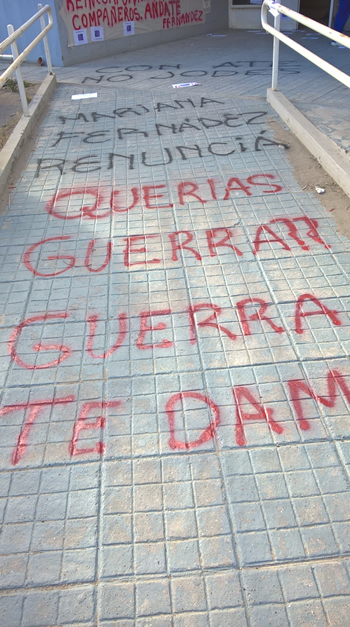 COMPAÑEROS. ANDATE
FERNANDEZ
CON ATE
NO JODES
MARIANA
FERNÁNDEZ
RENUNCIÁ
QUERIAS
GUERRA??
GUERRA
TE DAM